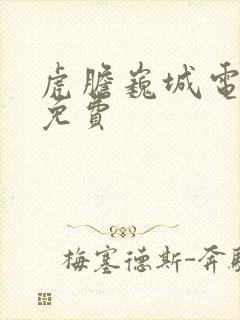 虎膽巍城電
免費
梅塞德斯-奔馳